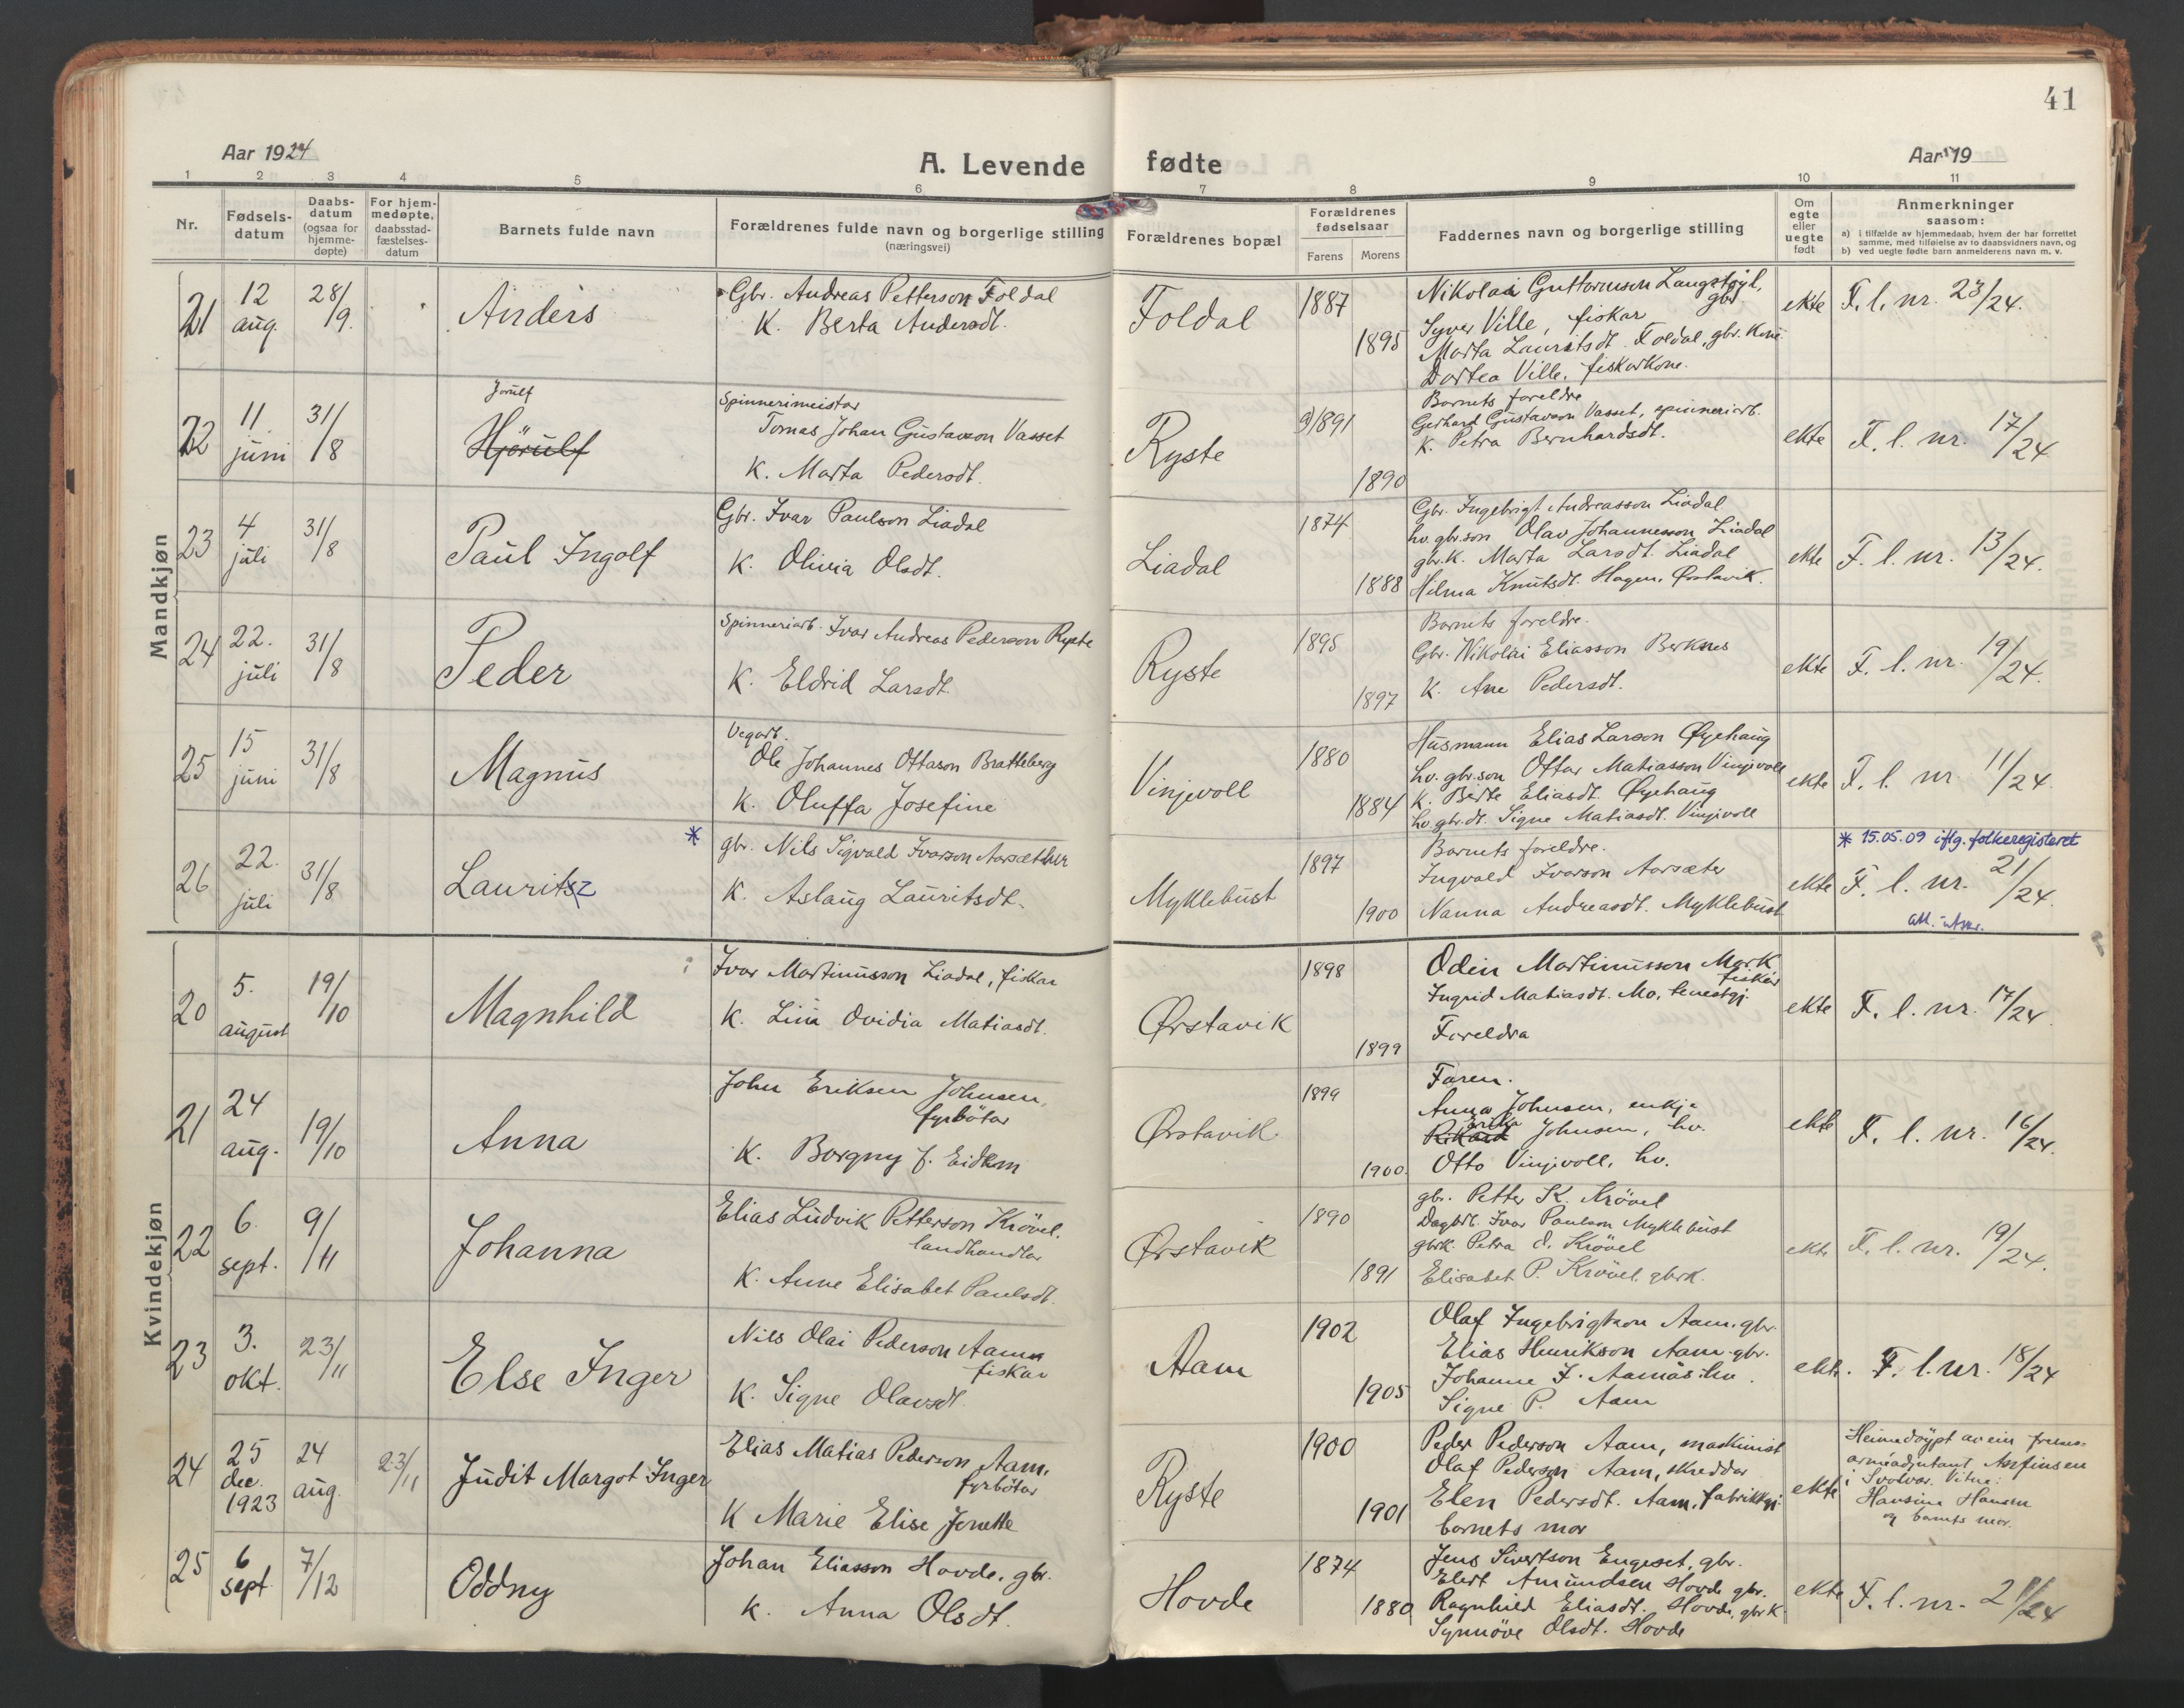 41
Aar 1924
A. Levende fødte
Aar 19
1 2 3 4 5 6 7 8 9 10 11
Nr.
Fødsels-
datum
Daabs-
datum
(ogsaa for
hjemme-
døpte)
For hjem-
medøpte,
daabsstad-
fæstelses-
datum
Barnets fulde navn
Forældrenes fulde navn og borgerlige stilling
(næringsvei)
Forældrenes bopæl
Forældrenes
fødselsaar
Farens Morens
Faddernes navn og borgerlige stilling
Om
egte
eller
uegte
født
Anmerkninger
saasom:
a) i tilfælde av hjemmedaab, hvem der har forrettet
samme, med tilføielse av to daabsvidners navn, og
b) ved uegte fødte barn anmelderens navn m. v.
Mandkjøn
21
12
aug.
28/9.
Anders
Gbr. Andreas Petterson Foldal
K. Berta Andersdt.
Foldal
1887
1895
Nikolai Guttormson Langstøyl,
gbr
Syver Ville, fiskar
Marta Lauritsdt. Foldal, gbr. Kone
Dortea Ville, fiskarkone.
ekte
F. l. nr. 23/24.
22
11
juni
31/8
Jorulf
Hjörulf
Spinnerimeistar
Tomas Johan Gustavson Vasset
K. Marta Pedersdt.
Ryste
1891
1890
Barnets foreldre
Gerhard Gustavson Vasset, spinneriarb.
K. Petra Bernhardsdt.
ekte
F. l. nr. 17/24
23
4
juli
31/8
Paul Ingolf
Gbr. Ivar Paulson Liadal
K. Olivia Olsdt.
Liadal
1874
1888
Gbr. Ingebrigt Andreasson Liadal
hv. gbr.son Olav Johannesson Liadal
gbr.k. Marta Larsdt. Liadal
Hilma Knutsdt. Hagen, Ørstavik.
ekte
F. l. nr. 13/24.
24
22.
juli
31/8
Peder
Spinneriarb. Ivar Andreas Pederson Ryste
K. Eldrid Larsdt.
Ryste
1895
1897
Barnets foreldre.
Gbr. Nikolai Eliasson Berknes
K. Ane Pedersdt.
ekte
F. l. nr. 19/24.
25
15
juni
31/8
Magnus
Vegarb.
Ole Johannes Ottason Bratteberg
K. Oluffa Josefine
Vinjevoll
1880
1884
Husmann Elias Larson Øyehaug
hv. gbr.son Ottar Matiasson Vinjevoll
K. Birte Eliasdt. Øyehaug
hv. gbr.dt. Signe Matiasdt. Vinjevoll
ekte
F. l. nr 11/24.
26
22.
juli
31/8
Lauritz
*
gbr. Nils Sigvald Ivarson Aarsæther
K. Aslaug Lauritsdt.
Myklebust
1897
1900
Barnets foreldre.
Ingvald Ivarson Aarsæter
Nanna Andreasdt. Myklebust
ekte
* 15.05.09 iflg. folkeregisteret
F. l. nr. 21/24.
att. utskr.
Kvindekjøn
20
5.
august
19/10
Magnhild
Ivar Martinusson Liadal, fiskar
K. Lina Ovidia Matiasdt.
Ørstavik
1898
1899
Odin Martinusson Mork
fiskar
Ingrid Matiasdt. Mo, tenestgj.
Foreldra
ekte
F. l. nr. 17/24.
21
24
aug.
19/10
Anna
John Eriksen Johnsen,
fyrbötar
K. Borgny f. Eidem
Ørstavik
1899
1900.
Faren.
Anna Johnsen, enkje
Erika
Rikard Johnsen, hv.
Otto Vinjevoll, hv.
ekte
F. l. nr. 16/24.
22
6.
sept.
9/11
Johanna
Elias Ludvik Petterson Krövel,
landhandlar
K. Anne Elisabet Paulsdt.
Ørstavik
1890
1891
gbr. Petter K. Krövel
Dagarb. Ivar Paulson Myklebust
gbrk. Petra d. Krövel
Elisabet P. Krövel. gbrk.
ekte
F. l. nr. 19/24.
23
3.
okt.
23/11
Else Inger
Nils Olai Pederson Aam
fiskar
K. Signe Olavsdt.
Aam
1902
1905
Olaf Ingebrigtson Aam, gbr.
Elias Henrikson Aam. gbr.
Johanne J. Aamås. hv.
Signe P. Aam
ekte.
F. l. nr. 18/24
24
25
dec.
1923
24
aug.
23/11
Judit Margot Inger
Elias Matias Pederson Aam,
fyrbötar
K Marie Elise Jenette
Ryste
1900
1901
Peder Pederson Aam, maskinist
Olaf Pederson Aam, skreddar
Elen Pedersdt. Aam, fabrikkgj.
barnets mor
ekte
Heimedöypt av ein frelses-
armeadjutant Asfinsen
i Svolvær. Vitne:
Hansine Hansen
og barnets mor.
25
6
sept.
7/12
Oddny
Johan Eliasson Hovde, gbr.
K. Anna Olsdt.
Hovde
1874
1880
Jens Sivertson Engeset, gbr.
Elert Amundsen Hovde gbr.
Ragnhild Eliasdt. Hovde, gbr K.
Synnöve Olsdt. Hovde
ekte
F. l. nr. 21/24